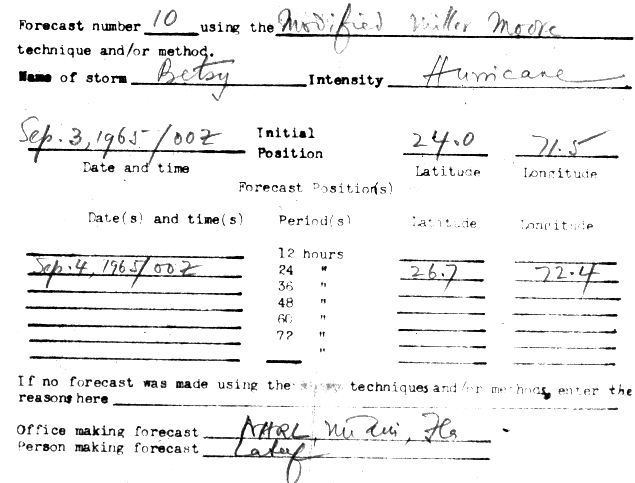 Forecast number 10 using the Modified Miller Moore
technique and/or method.
Name of storm Betsy Intensity Hurricane
Sep. 3, 1965/00Z Initial Position 24.0 71.5
Date and time Latitude Longitude
Forecast Position(s)
Date(s) and time(s) Period(s) Latitude Longitude
12 hours
Sep. 4, 1965/00Z 24 " 26.7 72.4
36 "
48 "
60 "
72 "
"
If no forecast was made using the techniques and/or methods, enter the
reasons here
Office making forecast NHRL, Miami, Fla
Person making forecast